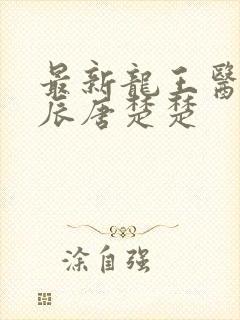 最新龍王醫
辰唐楚楚
涂自强